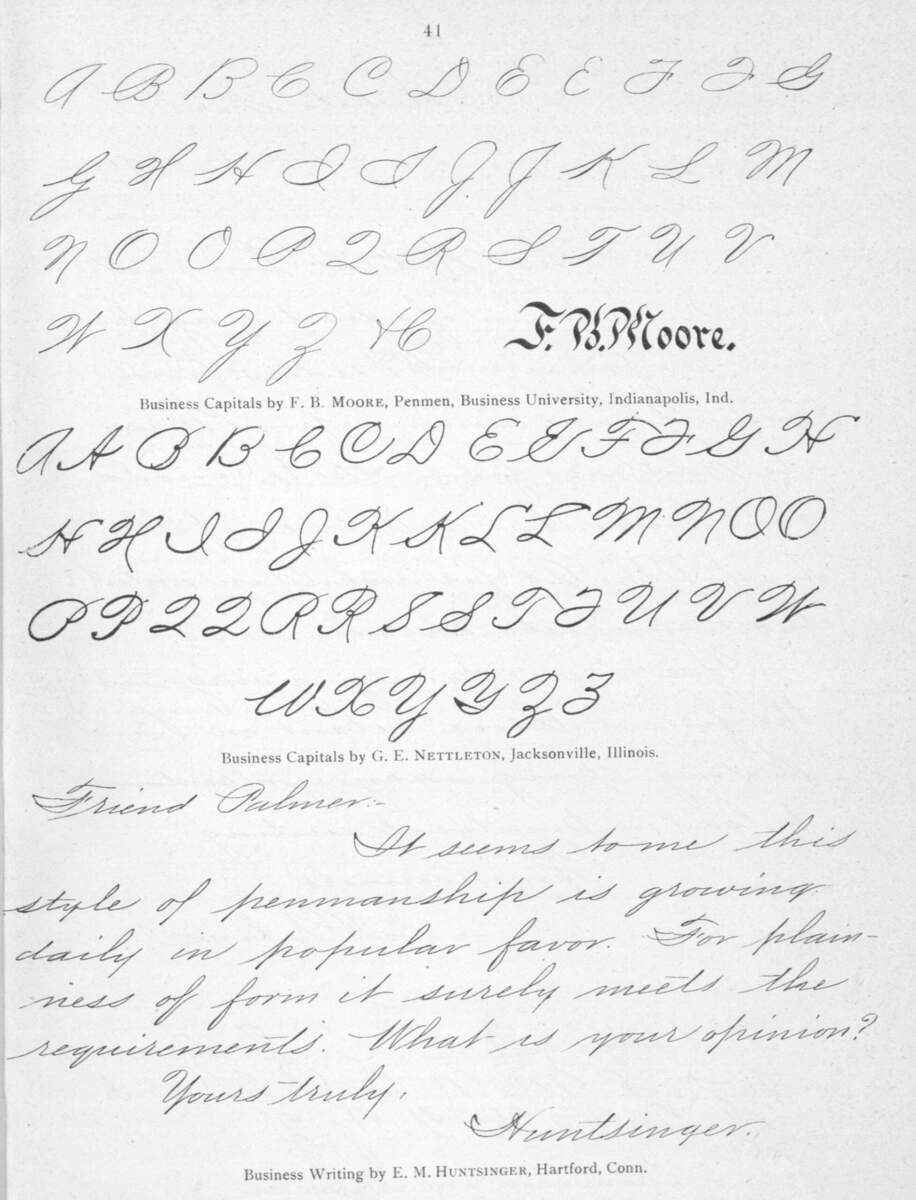 41
A B B C C D E E F F G
G H H I I J J K L M
N O O P Q R S T U V
W X Y Z &C F. B. Moore.
Business Capitals by F. B. MOORE, Penmen, Business University, Indianapolis, Ind.
A A B B C C D E E F F G H
H H I I J K K L L M N O O
P P Q Q R R S S T T U V W
W X Y Y Z Z
Business Capitals by G. E. NETTLETON, Jacksonville, Illinois.
Friend Palmer:-
It seems to me this
style of penmanship is growing
daily in popular favor. For plain-
ness of form it surely meets the
requirements. What is your opinion?
Yours truly,
Huntsinger.
Business Writing by E. M. HUNTSINGER, Hartford, Conn.